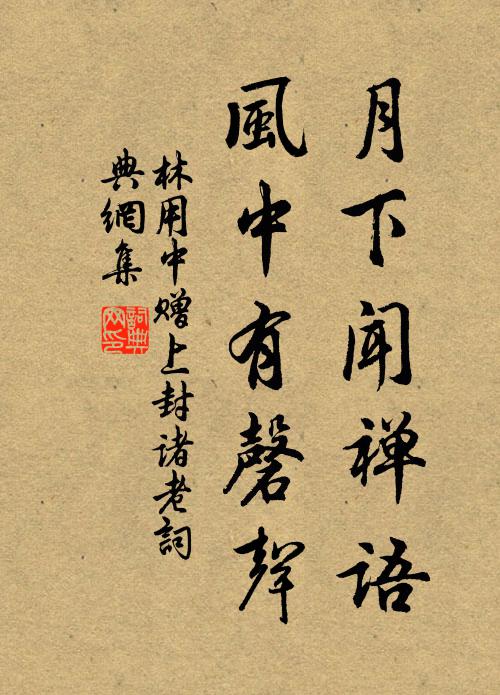 月下闻禅语
風中有磬聲
林用中赠上封诸老詞
典網集
詞典
网印